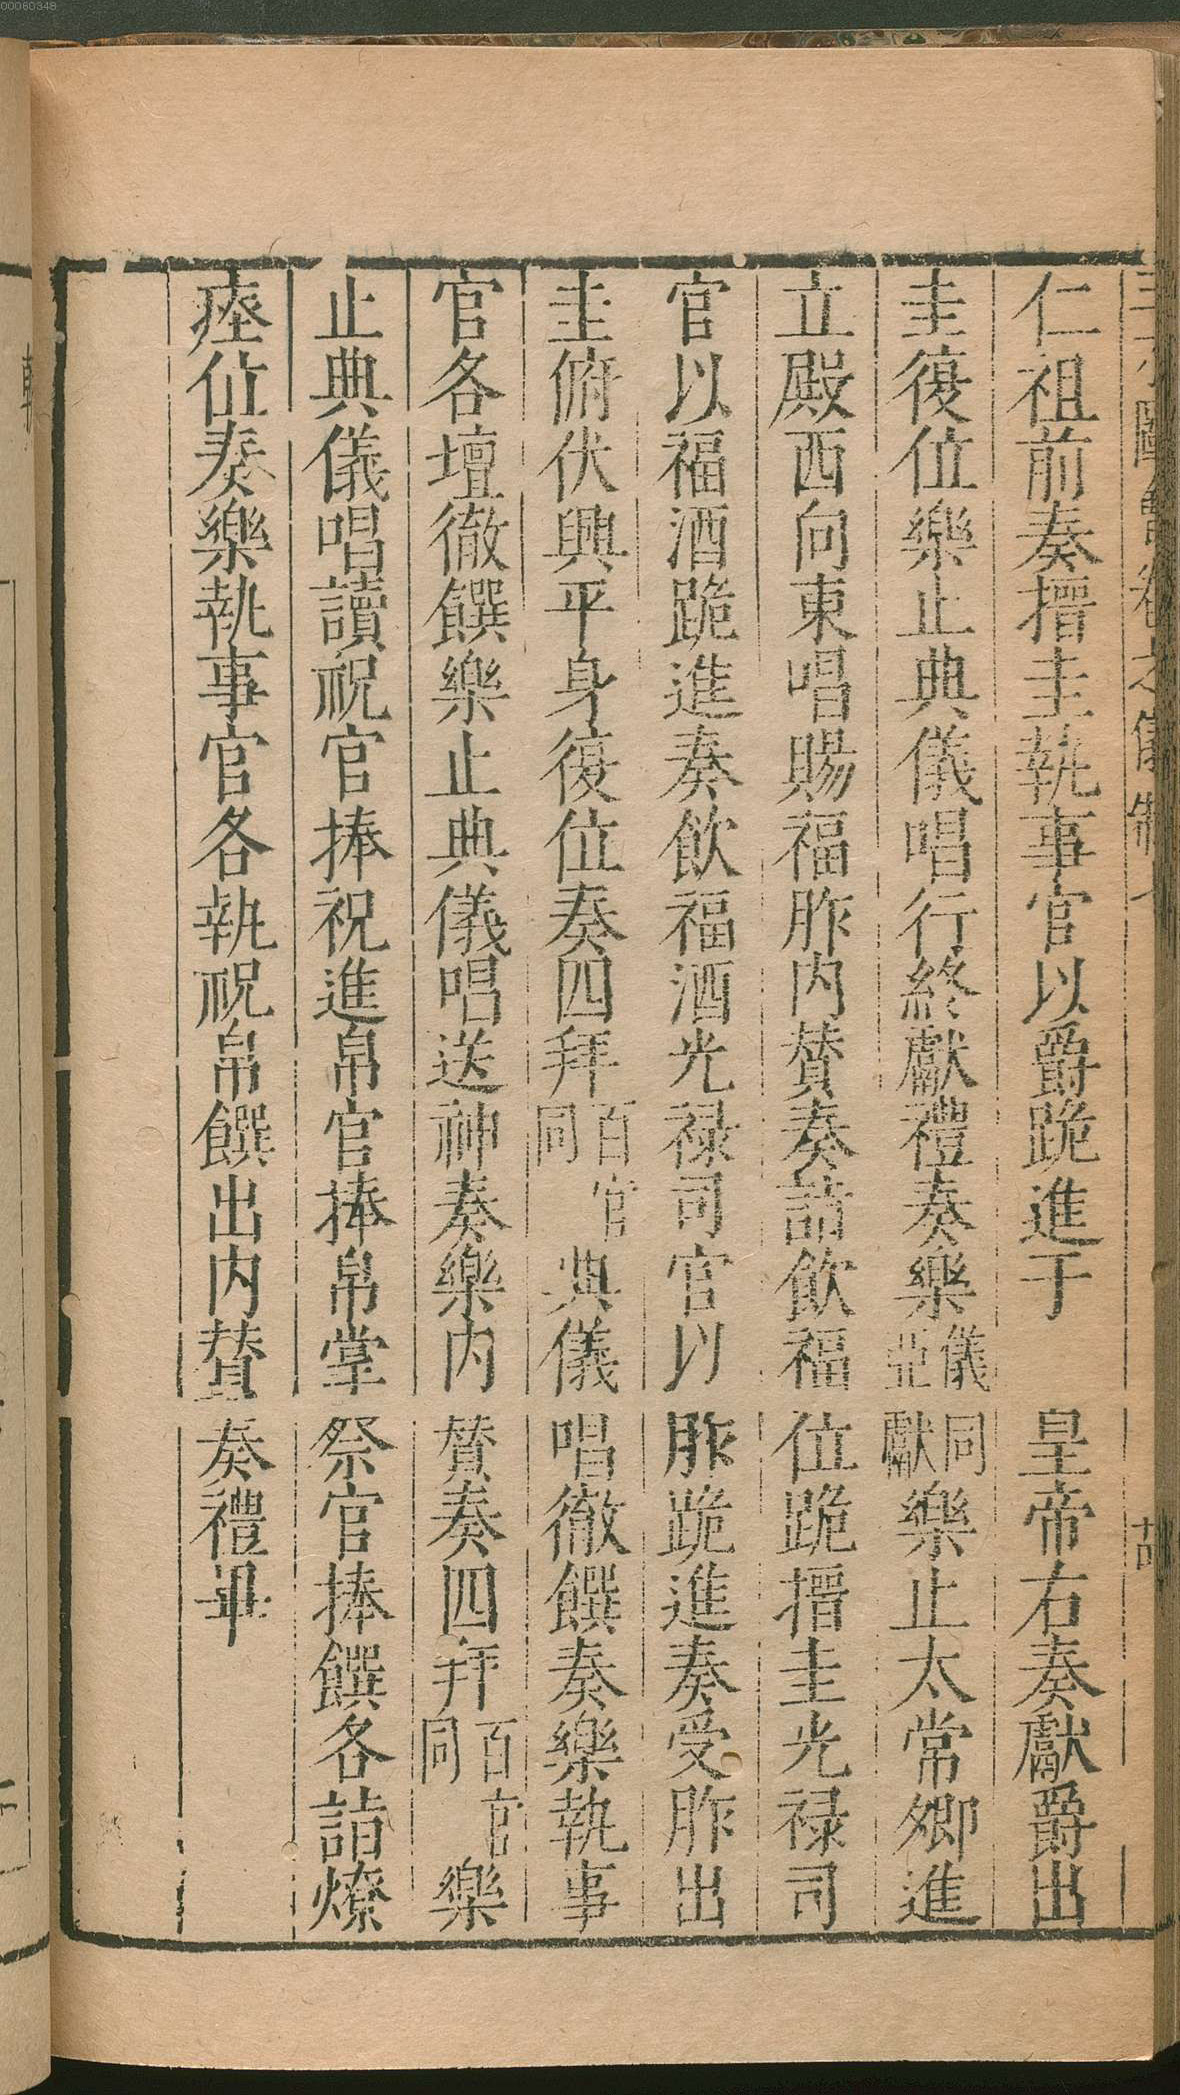 00060348
仁祖前奏搢圭執事官以爵跪進于 皇帝右奏獻爵出
圭復位樂止典儀唱行終獻禮奏樂儀同亞獻樂止太常卿進
立殿西向東唱賜福胙内贊奏詣飲福位跪搢圭光禄司
官以福酒跪進奏飲福酒光禄司官以胙跪進奏受胙出
圭俯伏興平身復位奏四拜百官同典儀唱徹饌奏樂執事
官各壇徹饌樂止典儀唱送神奏樂内贊奏四拜百官同樂
止典儀唱讀祝官捧祝進帛官捧帛掌祭官捧饌各詣燎
瘞位奏樂執事官各執祝帛饌出内贊奏禮畢